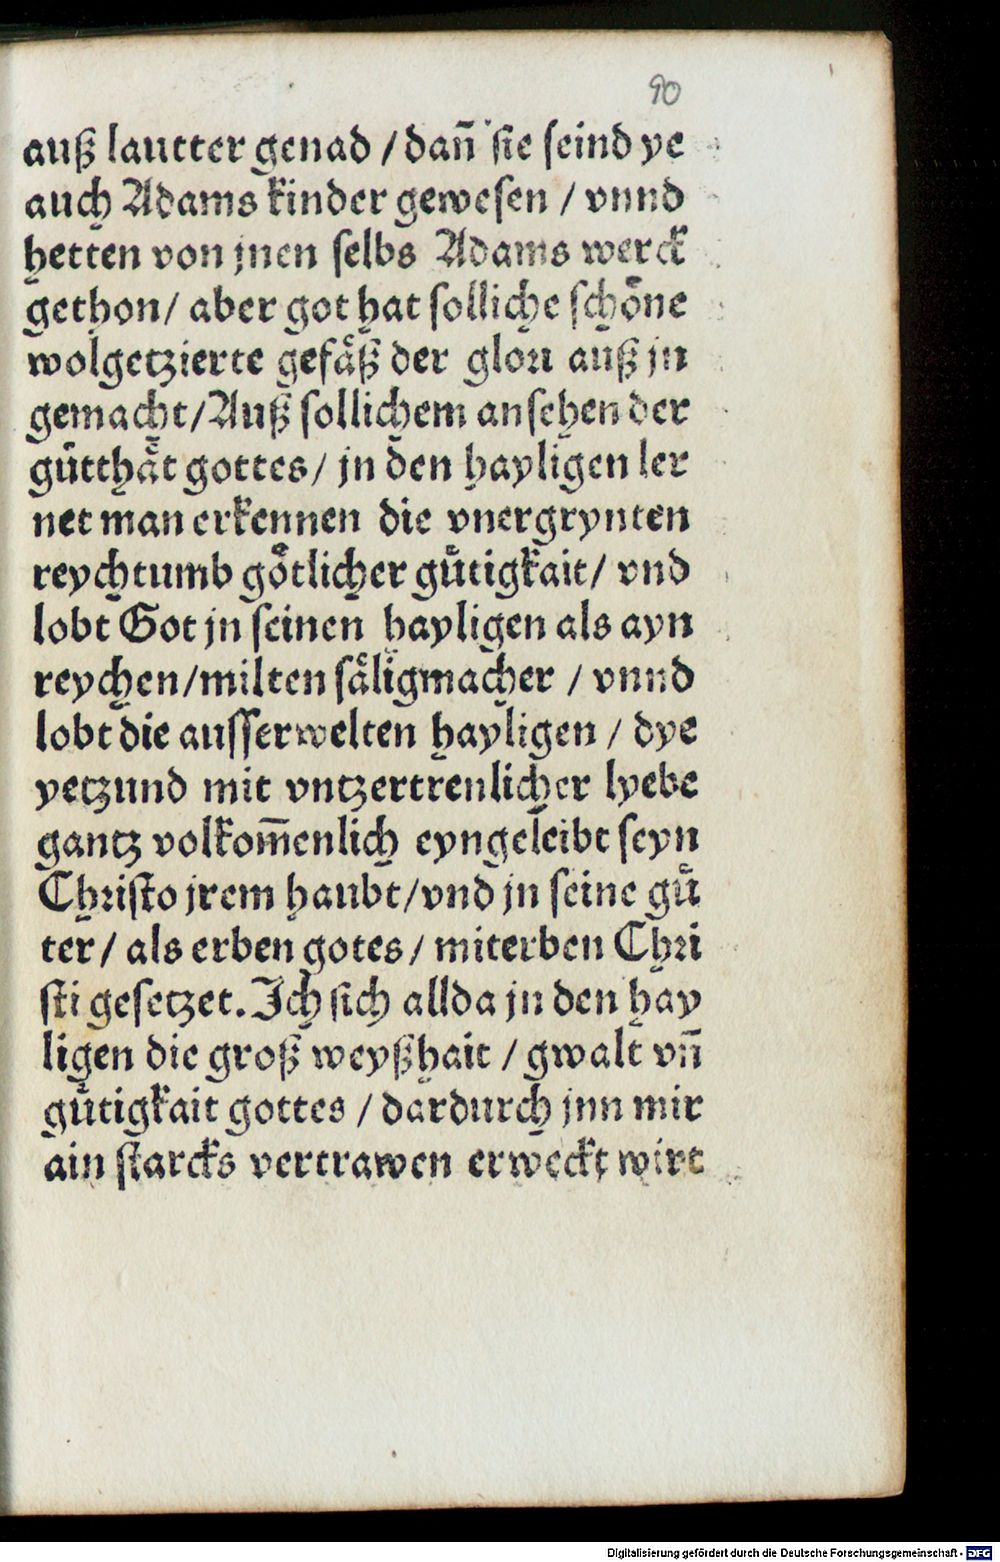 90
auß lautter genad / dañ sie seind ye
auch Adams kinder gewesen / vnnd
hetten von jnen selbs Adams werck
gethon / aber got hat solliche schoͤne
wolgetzierte gefaͤß der glori auß jn
gemacht / Auß sollichem ansehen der
guͤtthaͤt gottes / jn den hayligen ler
net man erkennen die vnergrynten
reychtumb goͤtlicher guͤtigkait / vnd
lobt Got jn seinen hayligen als ayn
reychen / milten saͤligmacher / vnnd
lobt die ausserwelten hayligen / dye
yetzund mit vntzertrenlicher lyebe
gantz volkom̄enlich eyngeleibt seyn
Christo jrem haubt / vnd jn seine guͤ
ter / als erben gotes / miterben Chri
sti gesetzet. Ich sich allda jn den hay
ligen die groß weyßhait / gwalt vñ
guͤtigkait gottes / dardurch jnn mir
ain starcks vertrawen erweckt wirt
Digitalisierung gefördert durch die Deutsche Forschungsgemeinschaft - DFG